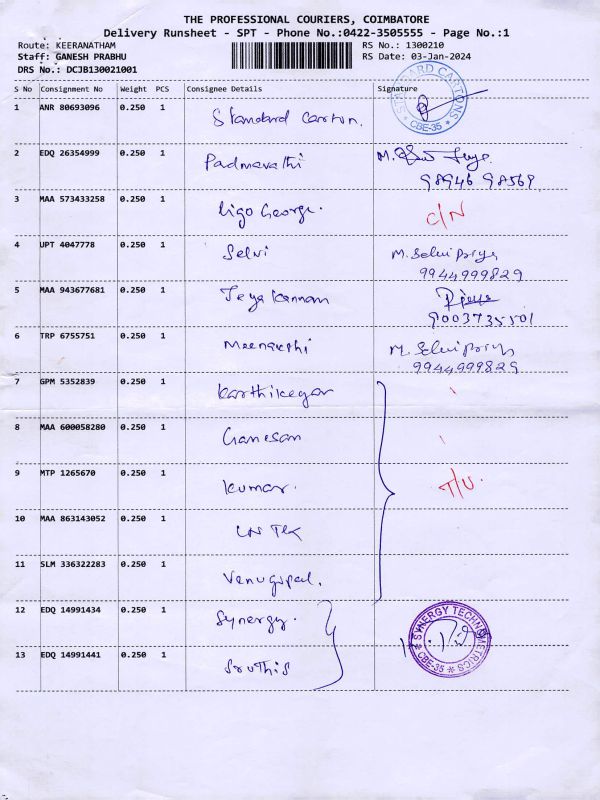 THE PROFESSIONAL COURIERS, COIMBATORE
Delivery Runsheet - SPT - Phone No.:0422-3505555 - Page No.:1
Route: KEERANATHAM RS No.: 1300210
Staff: GANESH PRABHU RS Date: 03-Jan-2024
DRS No.: DCJB130021001
S No Consignment No Weight PCS Consignee Details Signature
1 ANR 80693096 0.250 1 Standard Carton. STANDARD CARTONS * CBE-35 *
2 EDQ 26354999 0.250 1 Padmavathi M.
98946 98569
3 MAA 573433258 0.250 1 Ligo George. C/N
4 UPT 4047778 0.250 1 Selvi M. Selvi priya
9944999829
5 MAA 943677681 0.250 1 Jeya Kannan
9003735501
6 TRP 6755751 0.250 1 Meenakshi M. Selvi priya
9944999829
7 GPM 5352839 0.250 1 Karthikeyan
8 MAA 600058280 0.250 1 Ganesan
9 MTP 1265670 0.250 1 Kumar. T/U.
10 MAA 863143052 0.250 1 LN TEK
11 SLM 336322283 0.250 1 Venugopal.
12 EDQ 14991434 0.250 1 Synergy. SYNERGY TECHNOMETRICS * CBE-35 *
13 EDQ 14991441 0.250 1 Sruthis